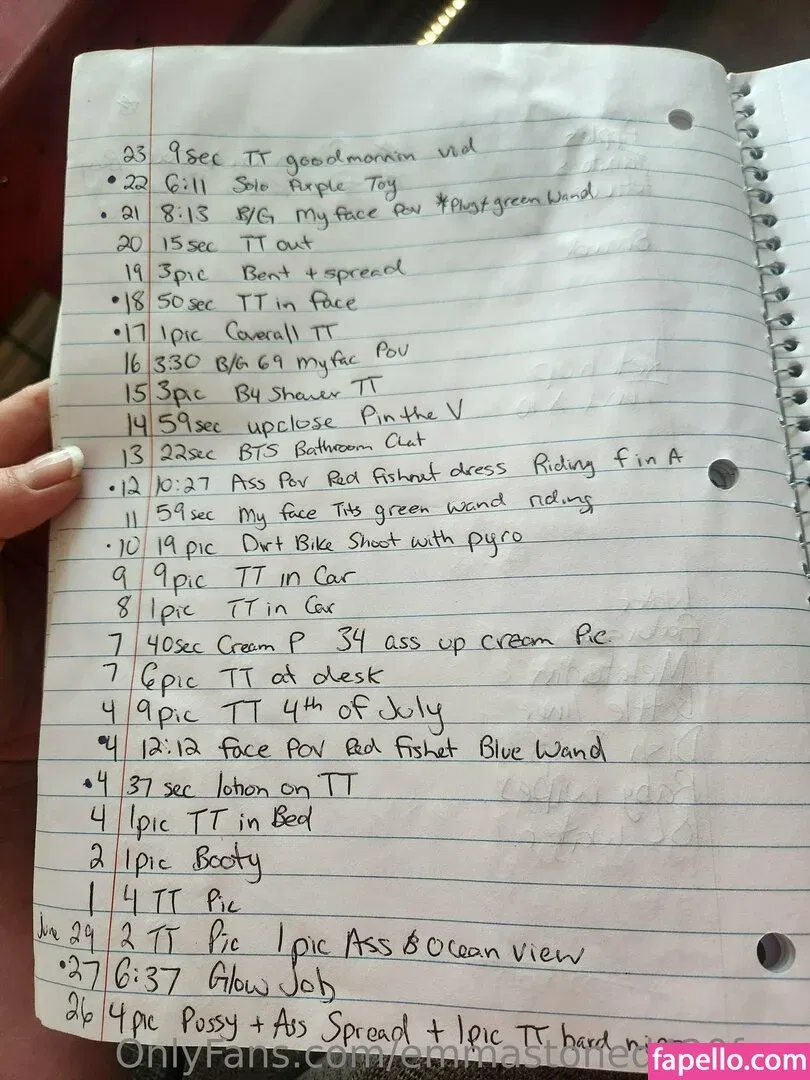 23 9sec TT goodmornin vid
• 22 6:11 Solo Purple Toy
• 21 8:13 B/G My face Pov *Plug+green Wand
20 15sec TT out
19 3pic Bent + spread
•18 50sec TT in face
•17 1pic Coverall TT
16 3:30 B/G 69 my fac Pov
15 3pic B4 Shower TT
14 59sec upclose Pin the V
13 22sec BTS Bathroom Chat
•12 10:27 Ass Pov Red fishnet dress Riding f in A
11 59sec My face Tits green wand riding
•10 19 pic Dirt Bike Shoot with pyro
9 9pic TT in Car
8 1pic TT in Car
7 40sec Cream P 34 ass up cream Pic
7 6pic TT at desk
4 9pic TT 4th of July
•4 12:12 face POV Red fishet Blue Wand
•4 37 sec lotion on TT
4 1pic TT in Bed
2 1pic Booty
1 4 TT Pic
June 29 2 TT Pic 1 pic Ass & Ocean view
•27 6:37 Glow Job
26 4pic Pussy + Ass Spread + 1pic TT hard
fapello.com